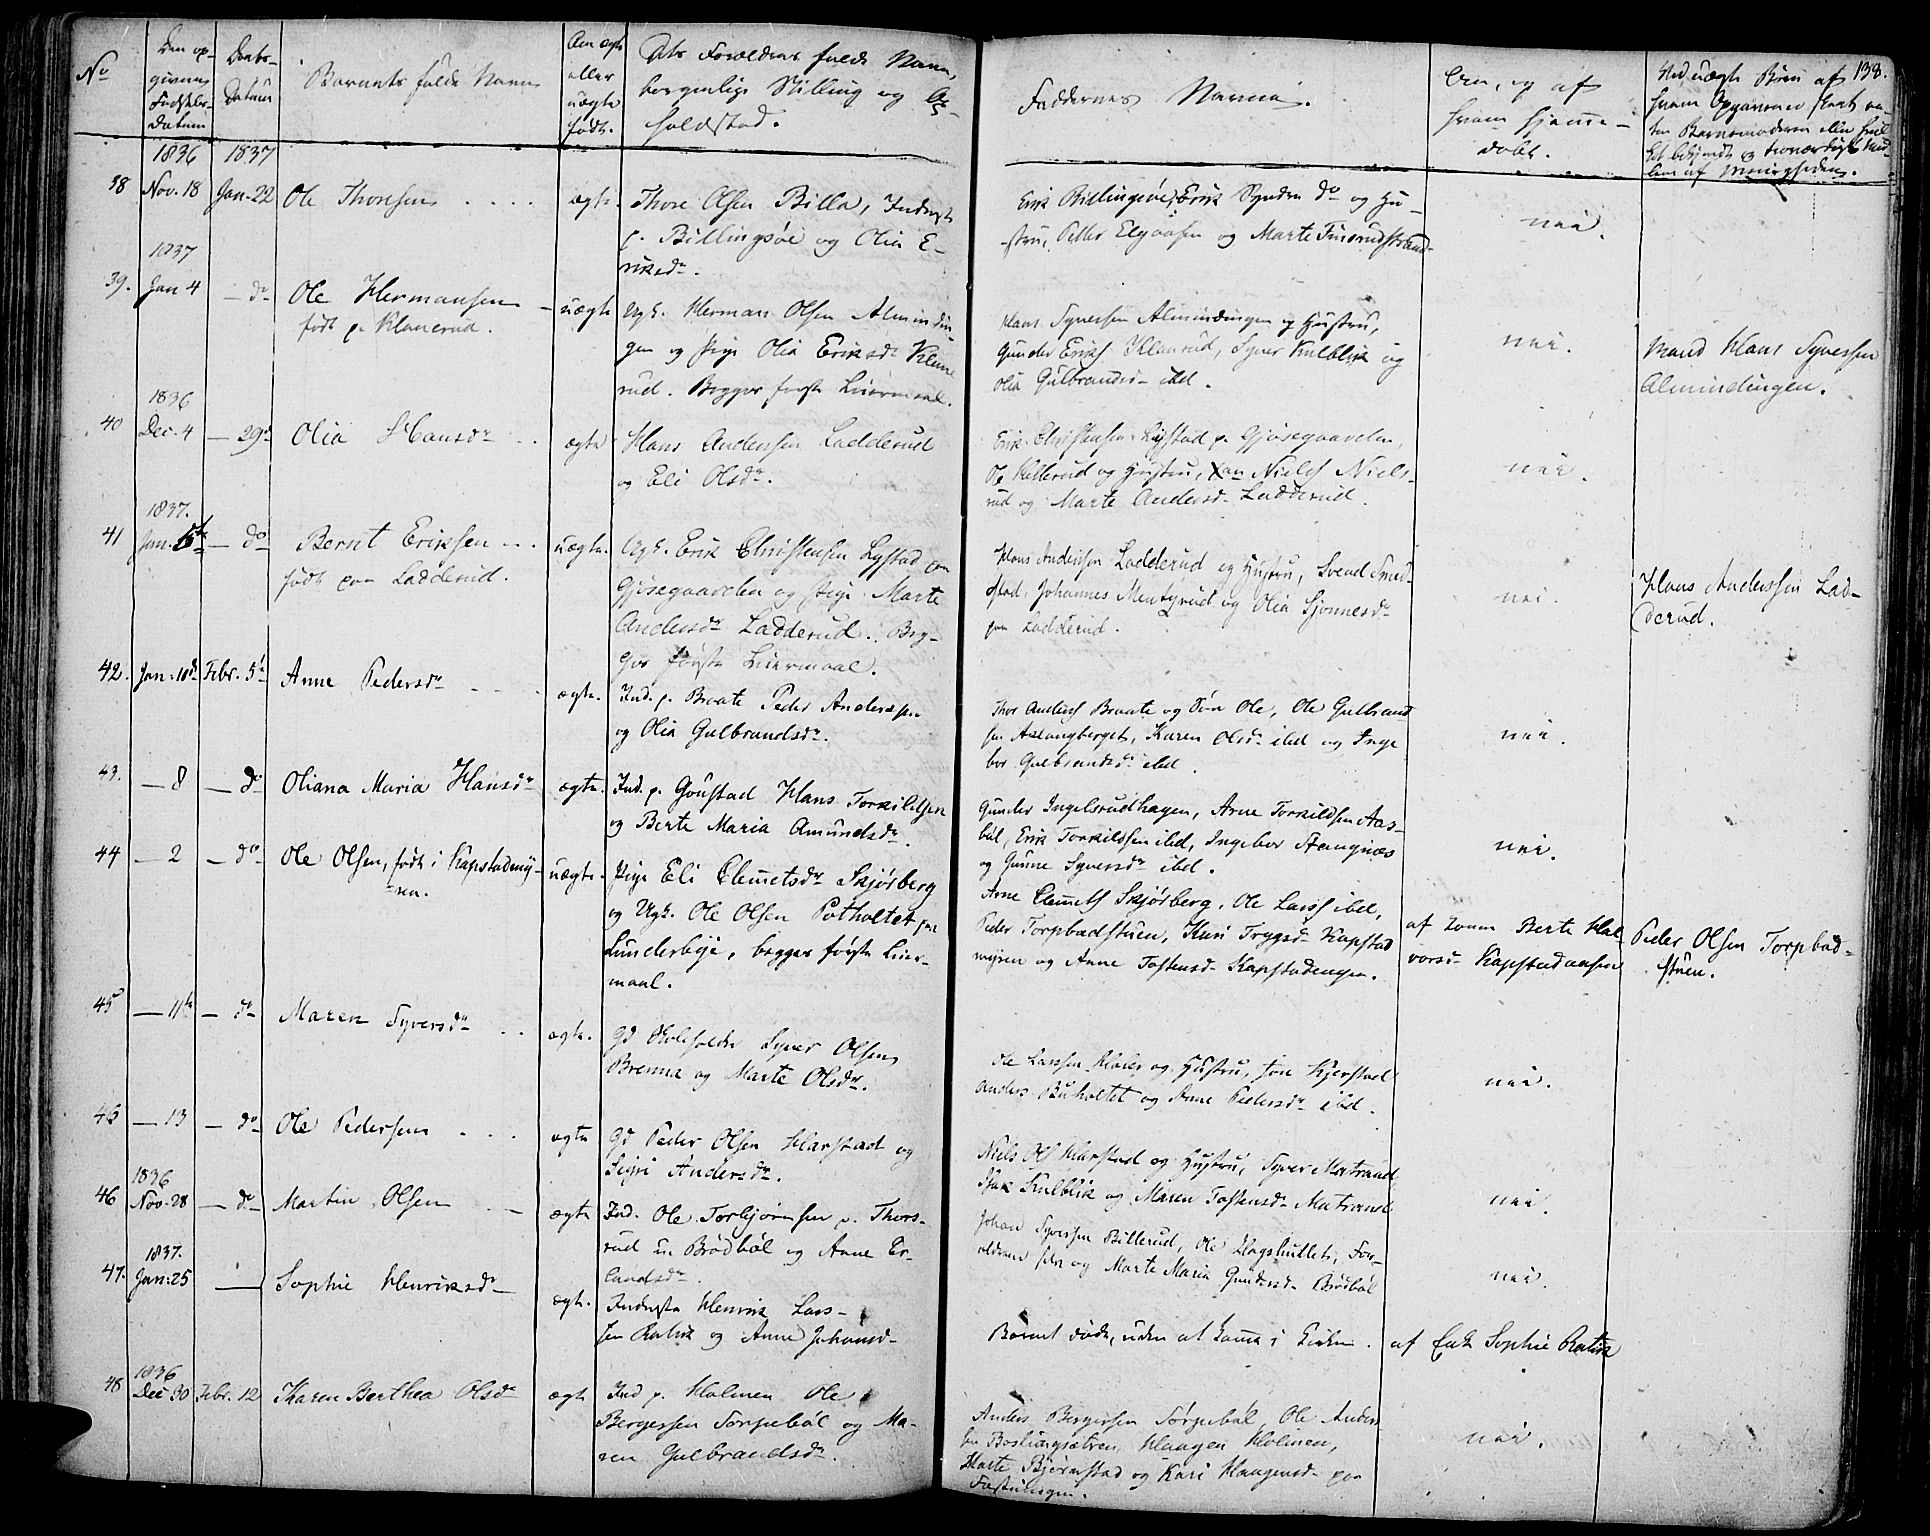 No
Den op-
givne
Fødsels-
Datum
Daabs-
Datum
Barnets fulde Navn
Om ægte
eller
uægte
født.
Dets Forældres fulde Navn,
borgerlige Stilling og Op-
holdssted.
Faddernes Navne.
Om, og af
hvem hjemme-
døbt.
Ved uægte Børn af
138.
1836 1837
38 Nov. 18 Jan. 22 Ole Thoresen ægte Thore Olsen Billa, Inderst
p. Billingsøe og Olia E-
riksdr.
Erik Billingsøe, Erik Syndre do og Hu-
stru, Peder Elgaasen og Marte Finsrudstrand
nei.
1837
39. Jan 4 — do Ole Hermansen
født p. Klanerud.
uægte Ugk. Herman Olsen Almindin
gen og Pige Olia Eriksdr Klane
rud. Begges første Leiermaal.
Hans Syversen Almindingen og Hustru,
Gunder Eriks. Klanrud, Syver Kulblik og
Olia Gulbrandsd ibd.
nei.
Mand Hans Syversen
Almindingen.
1836
40 Dec. 4 — 29d Olia Hansdr ægte Hans Andersen Ladderud
og Eli Olsdr.
Erik Christensen Lystad p. Gjøsegaardn,
Ole Kellerud og Hustru, Niels Niels-
rud og Marte Andersd Ladderud.
nei.
1837.
41 Jan. 6te — do Bernt Eriksen
født paa Ladderud.
uægte. Ugk. Erik Christensen Lystad paa
Gjøsegaarden og Pige Marte
Andersdr Ladderud. Beg-
ges første Leiermaal.
Hans Andersen Ladderud og Hustru, Svend Smed-
stad, Johannes Mentyrud og Olia Sjønnesdr
paa Ladderud.
nei.
Hans Anderssen Lad-
derud.
42. Jan. 10d Febr. 5te Anne Pedersdr ægte. Ind. p. Braate Peder Andersen
og Olia Gulbrandsdr.
Thor Anders Braate og Søn Ole, Ole Gulbrand
sen Aslangberget, Karen Olsd ibd og Inge
bor Gulbrandsdr ibd.
nei.
43. — 8 — do Oliana Maria Hansdr ægte. Ind. p. Goustad Hans Torkildsen
og Berte Maria Amundsdr.
Gunder Ingelsrudhagen, Arne Torkildsen Aas-
bøl, Erik Torkildsen ibd, Ingebor Stangnæs
og Gunne Syversdr ibd.
nei.
44 — 2 — do Ole Olsen, født i Kapstadmy-
ren.
uægte. Pige Eli Clemetsdr Skjørberg
og Ugk. Ole Olsen Potholtet paa
Lundersbye, begges første Leier-
maal.
Arne Clemets Skjørberg, Ole Lars ibd,
Peder Torpbadstuen, Kari Trygsd Kapstad
myren og Anne Tostensd Kapstadengen.
af Konen Berte Hal
vorsd Kapstad
Peder Olsen Torpbad-
stuen.
45 — 11te — do Maren Syversdr ægte. Gd Syver Olsen
Brenna og Marte Olsdr.
Ole Larssen og Hustru, Jon Kjerstad
Anders Buholtet og Anne Pedersdr ibd.
nei.
45 — 13 — do Ole Pedersen ægte Gd Peder Olsen Harstad og
Sigri Andersdr.
Niels Ols Harstad og Hustru, Syver Matrand
Isak Kulblik og Maren Tostensd Matrand
nei.
1836
46 Nov. 28 — do Martin Olsen ægte Ind. Ole Torbjørnsen p. Thors-
rud u. Brødbøl og Anne Er-
landsdr.
Johan Syversen Billerud, Ole Hagshullet, For-
ældrene selv og Marte Maria Gundersd Brødbøl
nei.
1837.
47. Jan: 25 — Sophie Henriksdr ægte. Inderste Henrik Lars-
sen Ratik og Anne Johansd
Barnet døde, uden at komme i Kirken.
af Enk Sophie Ratik
1836
48 Dec 30 Febr. 12 Karen Berthea Olsdr ægte Ind p. Holmen Ole
Bergersen Torpebøl og Ma-
ren Gulbrandsdr.
Anders Bergersen Torpebøl, Ole Anders
sen Baslingsætren, Haagen Holmen,
Marte Bjørnstad og Kari Haagensd paa
Fæstningen.
nei.